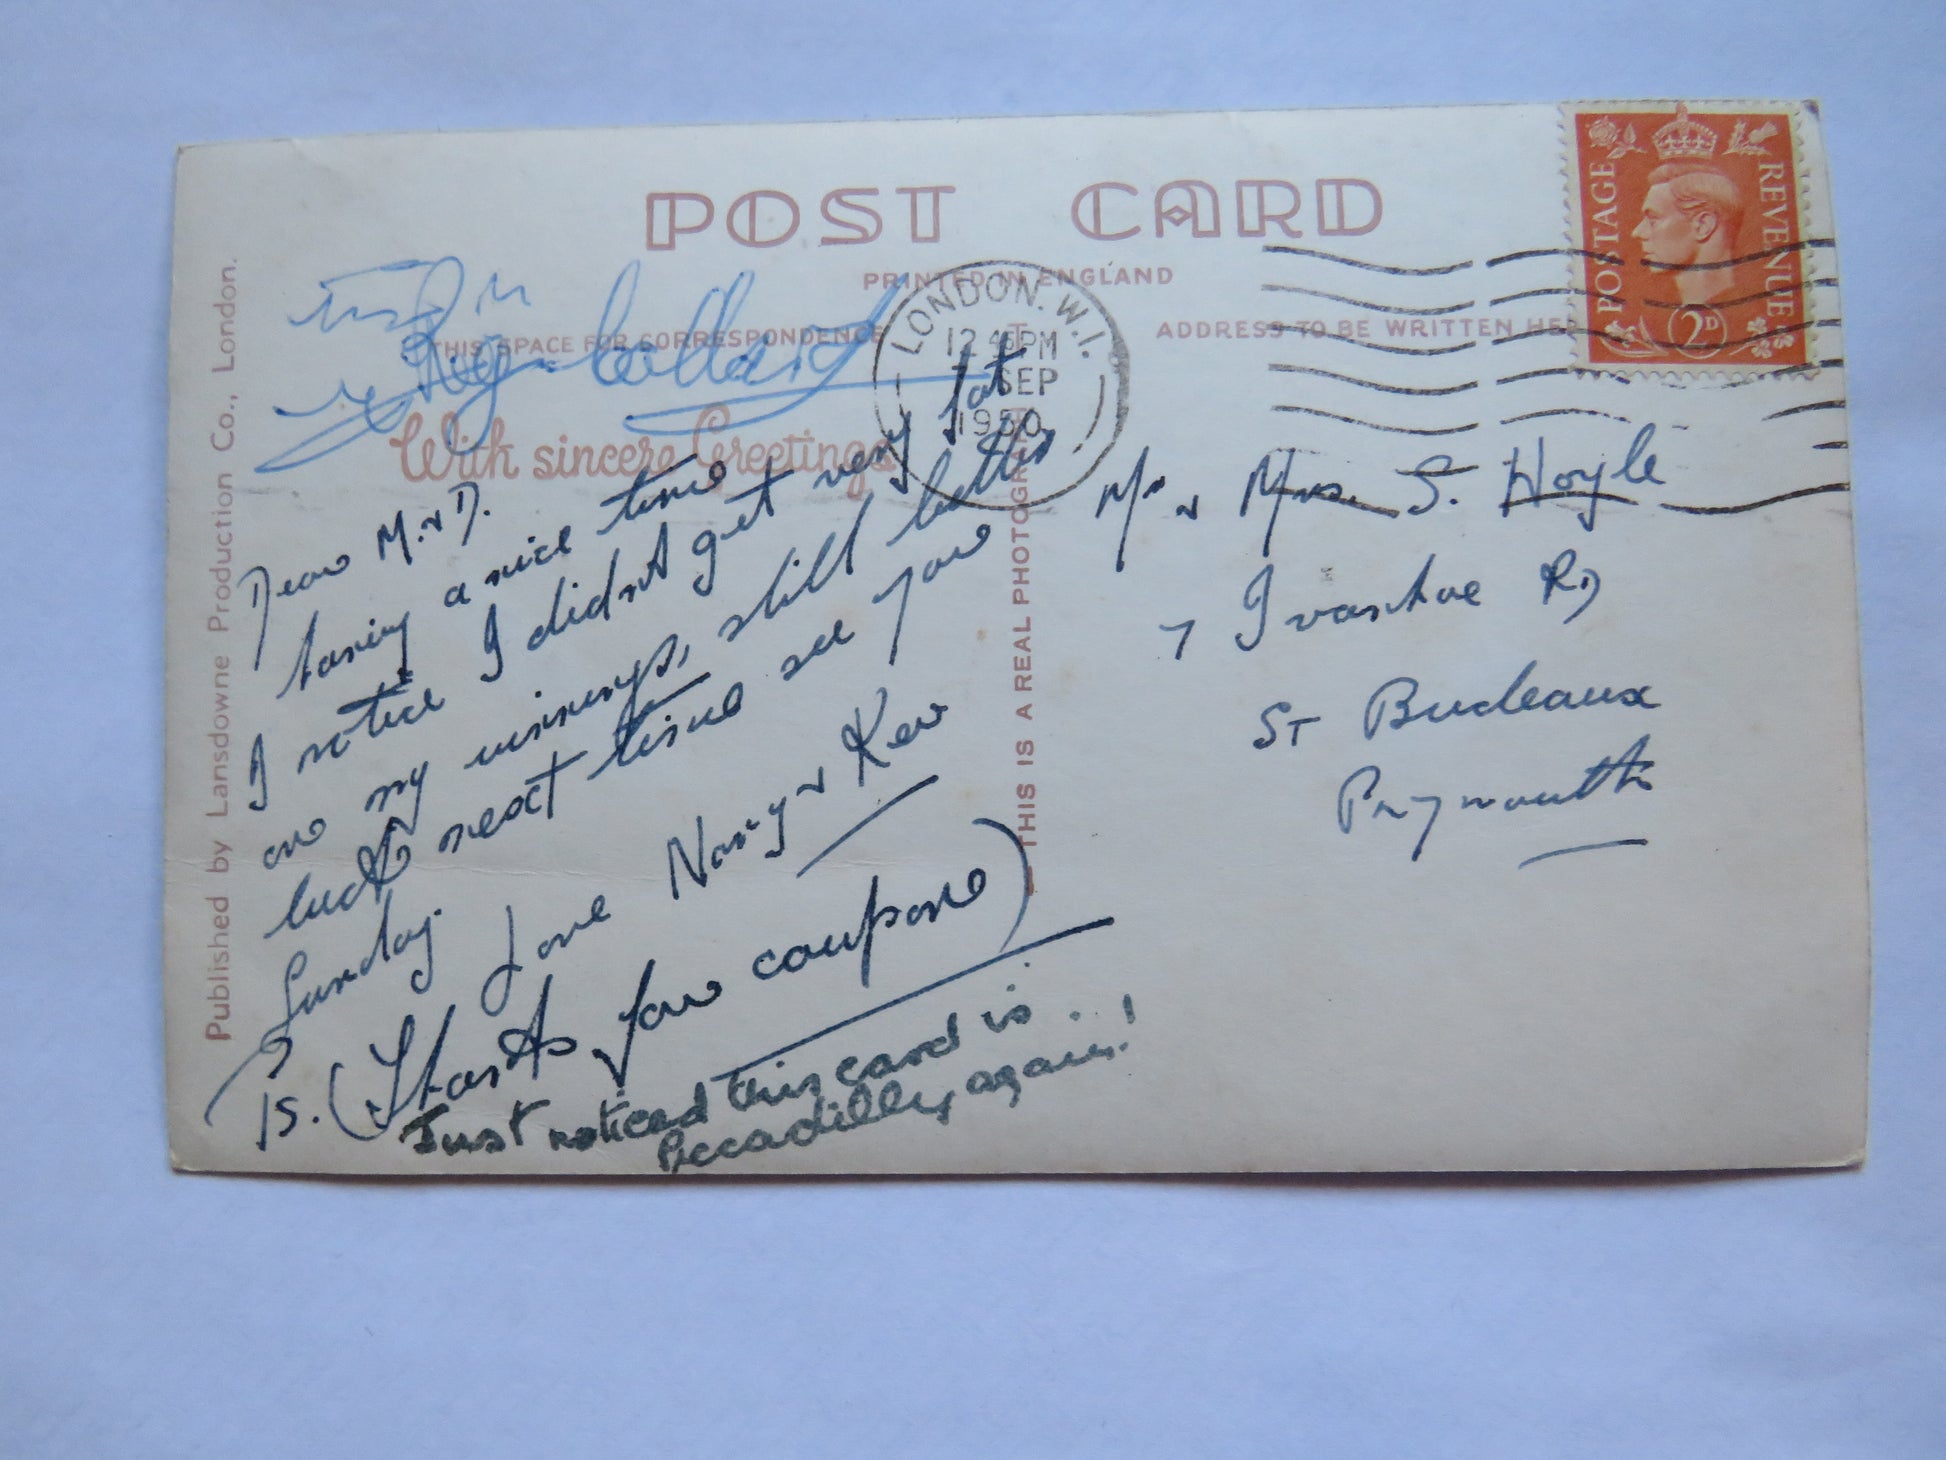 POST CARD
PRINTED IN ENGLAND
THIS SPACE FOR CORRESPONDENCE
ADDRESS TO BE WRITTEN HE
With sincere Greetings
Published by Lansdowne Production Co., London.
THIS IS A REAL PHOTOGRAPH
LONDON. W.1.
12 45 PM
SEP
1950
POSTAGE
REVENUE
2D
Dear M. & D.
having a nice time
I notice I didnt get very fat
on my winnings, still better
luck next time see you
Sunday.
Love Nancy & Kev
PS. (Thanks for coupons)
Just noticed this card is
Piccadilly again!
Mr & Mrs. S. Hoyle
7 Ivanhoe RD
ST Budeaux
Plymouth